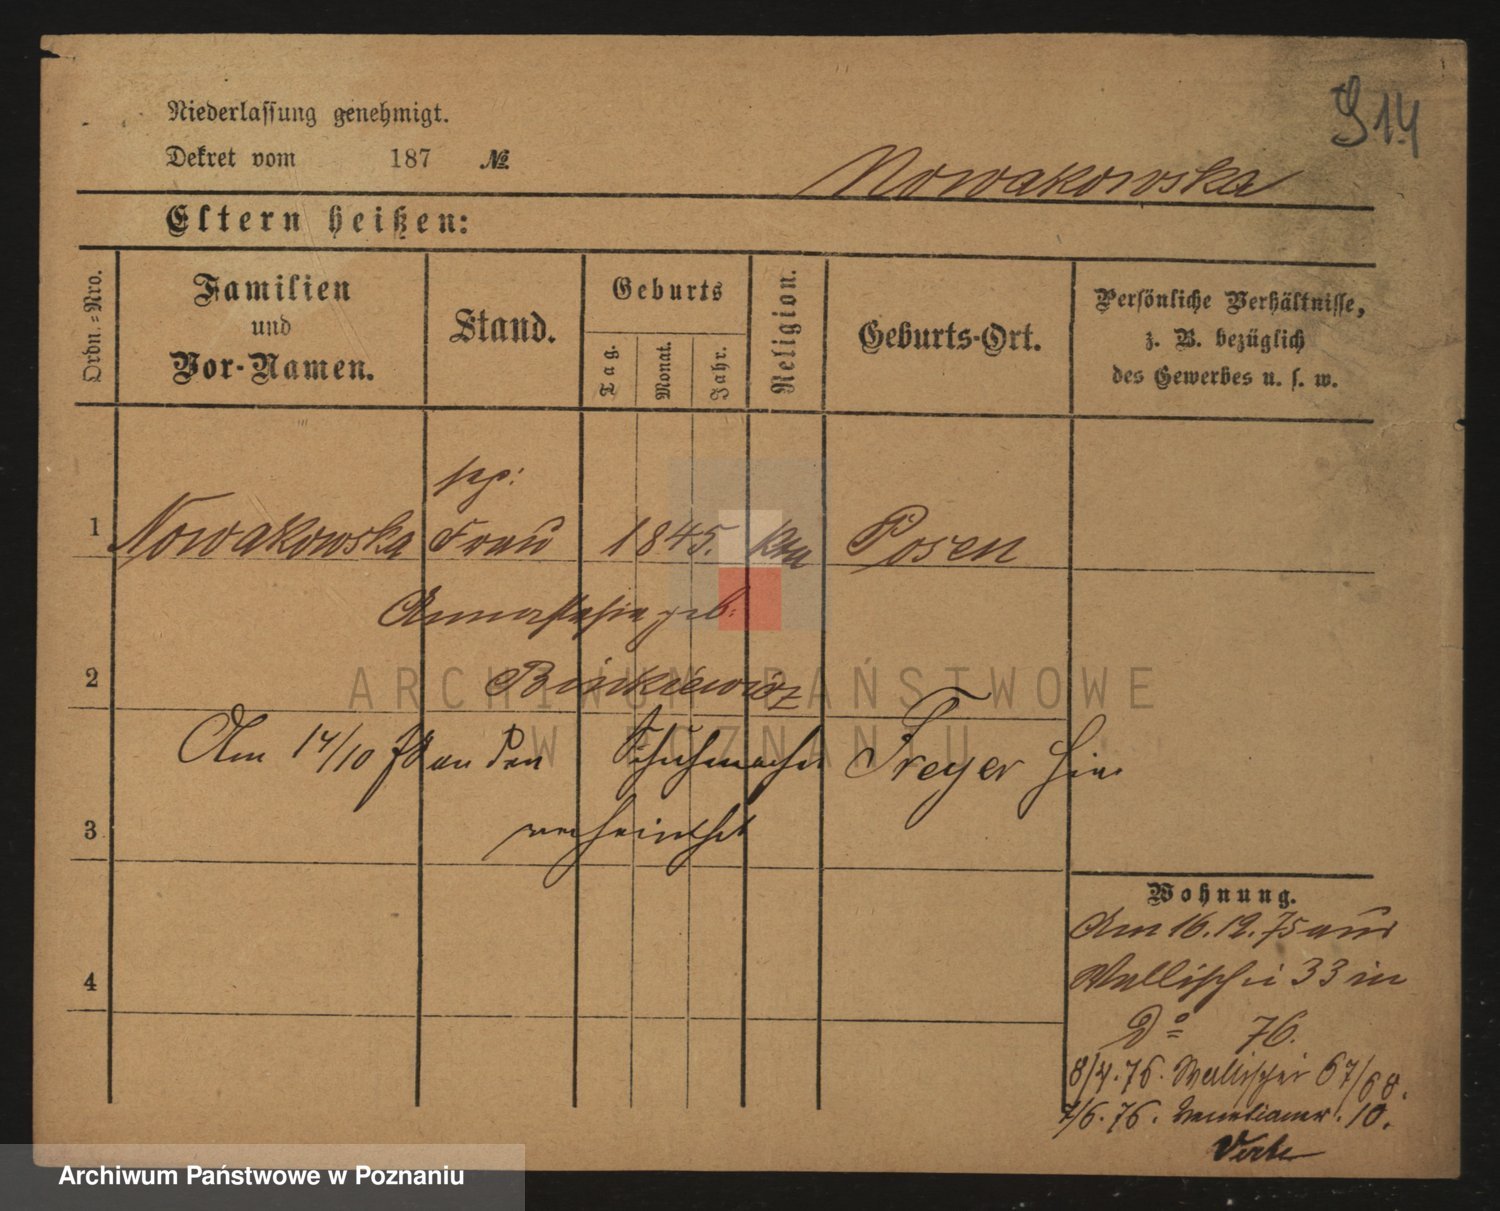 Niederlassung genehmigt.
Dekret vom 187 №
914
Nowakowska
Eltern heißen:
Ordn.-Nro.
Familien und Vor-Namen.
Stand.
Geburts
Tag.
Monat.
Jahr.
Religion.
Geburts-Ort.
Persönliche Verhältnisse,
z. B. bezüglich
des Gewerbes u. s. w.
sep:
1 Nowakowska Frau 1845. Posen
Annastasia geb:
2 Binkiewicz
Am 17/10 78 an den Schuhmacher Freyer hier
3 verheirathet
4
Wohnung.
Am 16.12.75 aus
Wallischei 33 in
Do 76.
8/4.76. Wallischei 67/68.
7/6.76. Venetianer. 10.
ARCHIWUM PAŃSTWOWE
W POZNANIU
Archiwum Państwowe w Poznaniu